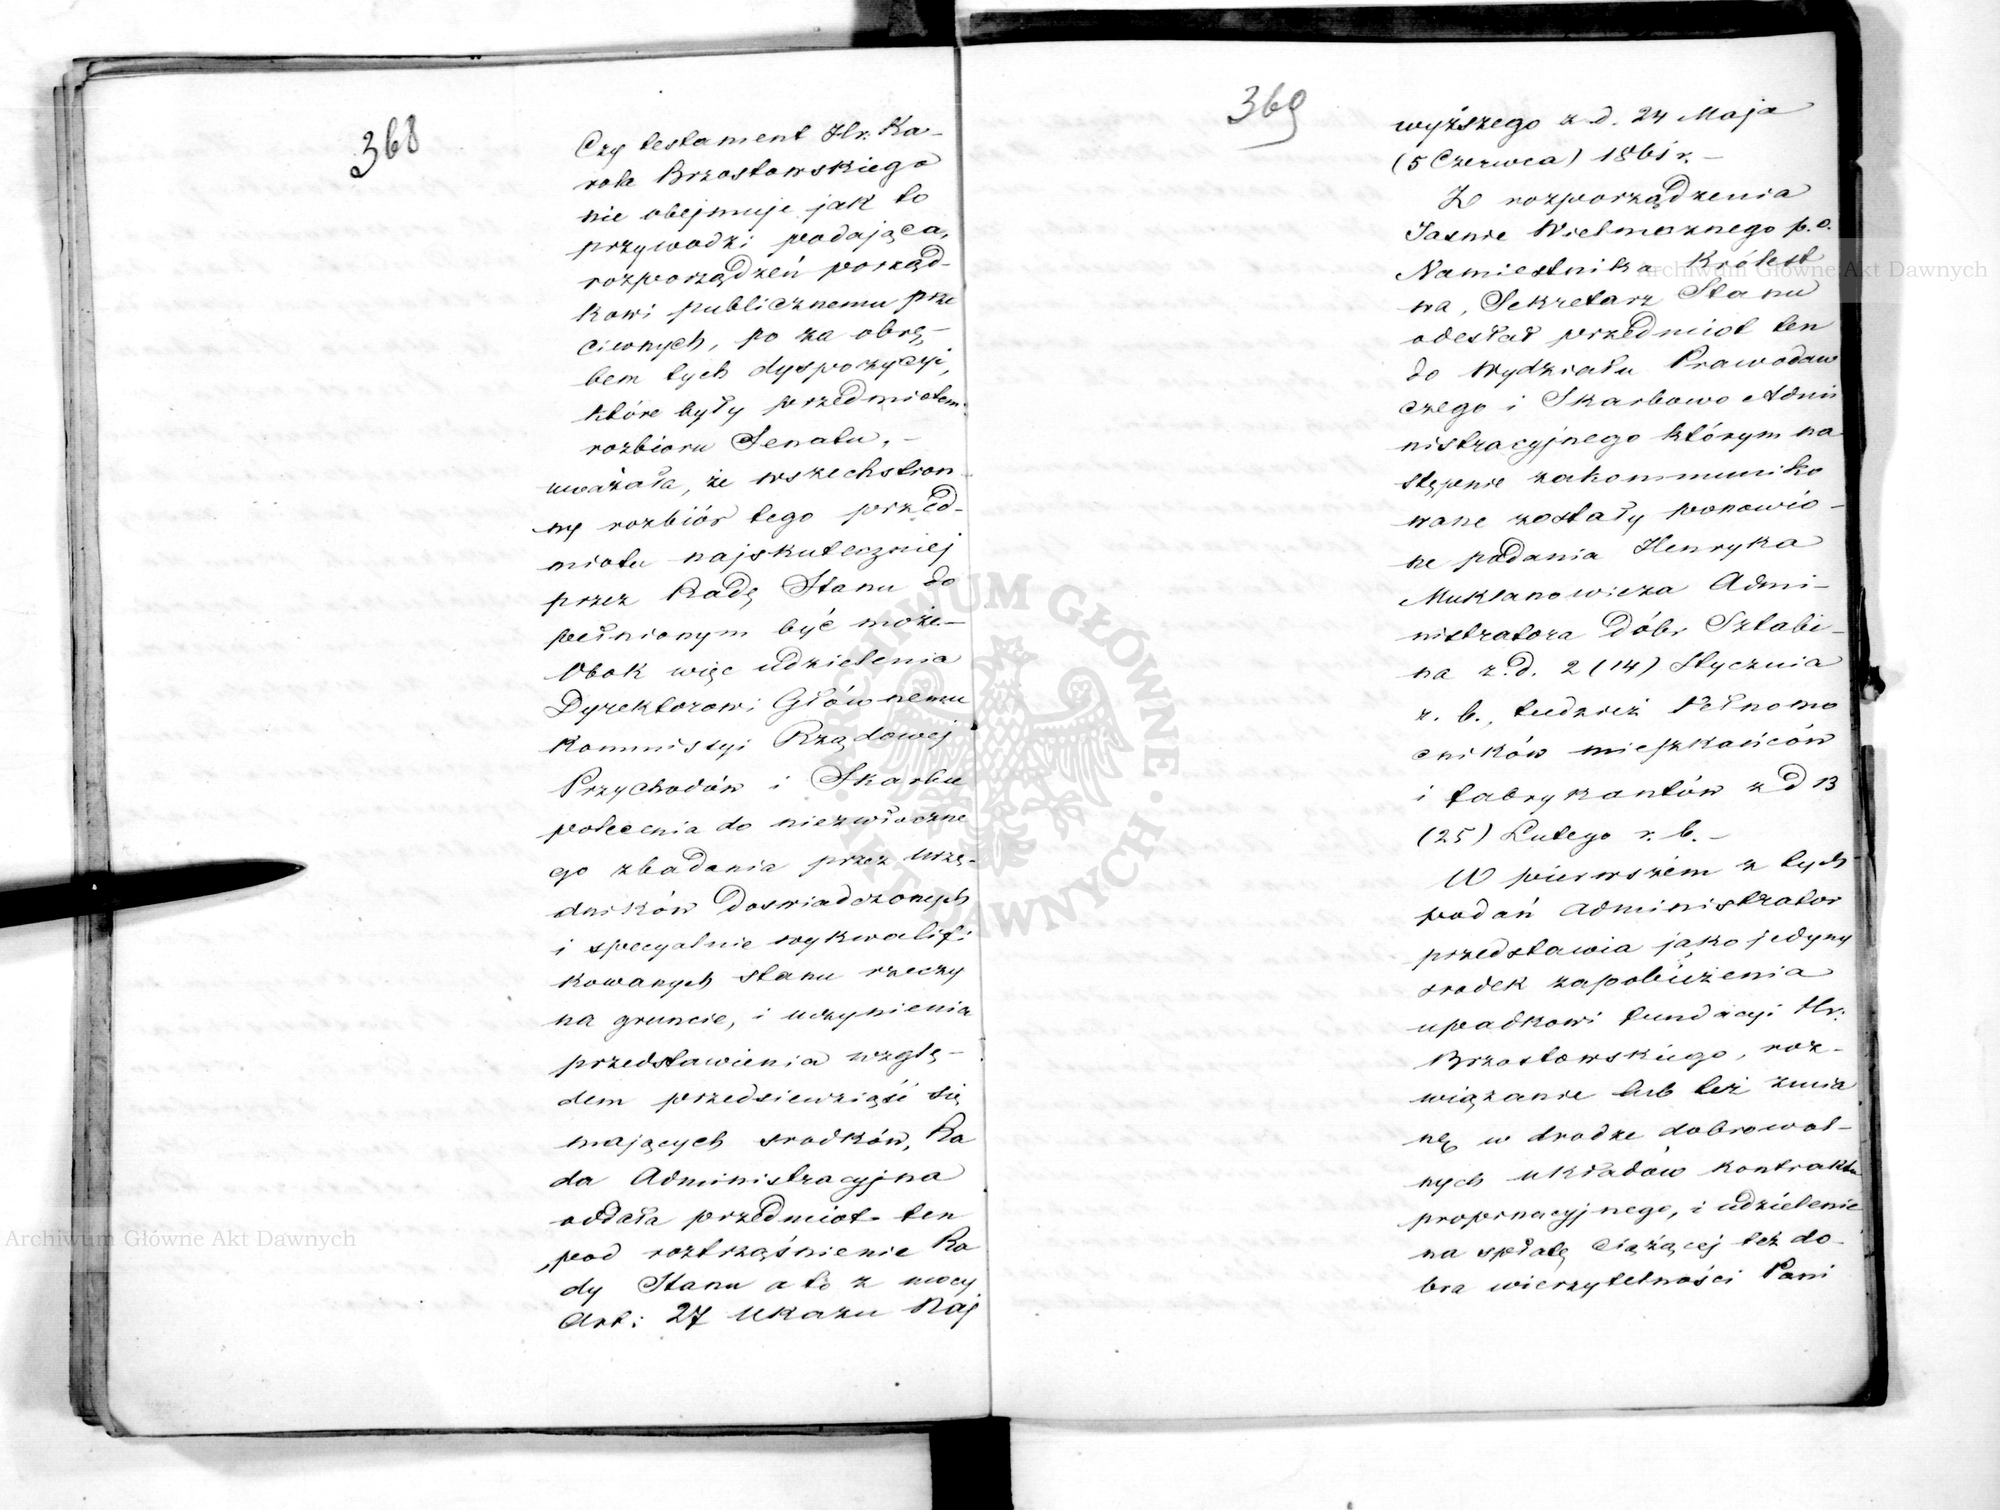 368
Czy testament Hr. Ka-
rola Brzostowskiego
nie obejmuje jak to
przywodzi podająca,
rozporządzeń porząd-
kowi publicznemu prze
ciwnych, po za obrę-
bem tych dyspozycyi,
które były przedmiotem
rozbioru Senatu, -
uważała, że wszechstron-
ny rozbiór tego przed-
miotu najskuteczniej
przez Radę Stanu do
pełnionym być może -
Obok więc udzielenia
Dyrektorowi Głównemu
Kommissyi Rządowej
Przychodów i Skarbu
polecenia do niezwłoczne
go zbadania przez urzę-
dników doswiadczonych
i specyalnie wykwalifi
kowanych stanu rzeczy
na gruncie, i uczynienia
przedstawienia wzglę-
dem przedsiewziąść się
mających srodków, Ra
da Administracyjna
oddała przedmiot ten
pod roztrząśnienie Ra
dy Stanu a to z mocy
Art: 27 Ukazu Naj
369
wyższego z d. 24 Maja
(5 Czerwca) 1861 r. -
Z rozporządzenia
Jasnie Wielmożnego p. o.
Namiestnika Królest
wa, Sekretarz Stanu
odesłał przedmiot ten
do Wydziału Prawodaw
czego i Skarbowo Admi
nistracyjnego którym na
stępnie zakommuniko
wane zostały ponowio-
ne podania Henryka
Muklanowicza Admi-
nistratora Dóbr Sztabi-
na z. d. 2 (14) Stycznia
r. b., tudzież Pełnomo
cników mieszkańców
i fabrykantów z d 13
(25) Lutego r. b. -
W pierwszém z tych
podań Administrator
przedstawia jako jedyny
srodek zapobieżenia
upadkowi fundacyi Hr.
Brzostowskiego, roz-
wiązanie lub też zmia
nę w drodze dobrowol-
nych układów kontraktu
propinacyjnego, i udzielenie
na spłatę ciążącej też do-
bra wierzytelności Pani
Archiwum Główne Akt Dawnych
Archiwum Główne Akt Dawnych
ARCHIWUM GŁÓWNE AKT DAWNYCH